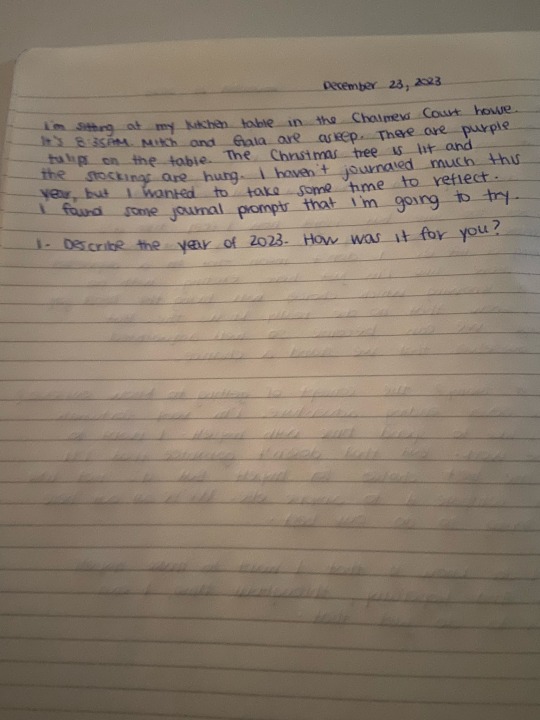 December 23, 2023
I'm sitting at my kitchen table in the Chalmers Court house.
It's 8:35AM. Mitch and are asleep. There are purple
tulips on the table. The Christmas tree is lit and
the stockings are hung. I haven't journaled much this
year, but I wanted to take some time to reflect.
I found some journal prompts that I'm going to try.
1. Describe the year of 2023. How was it for you?